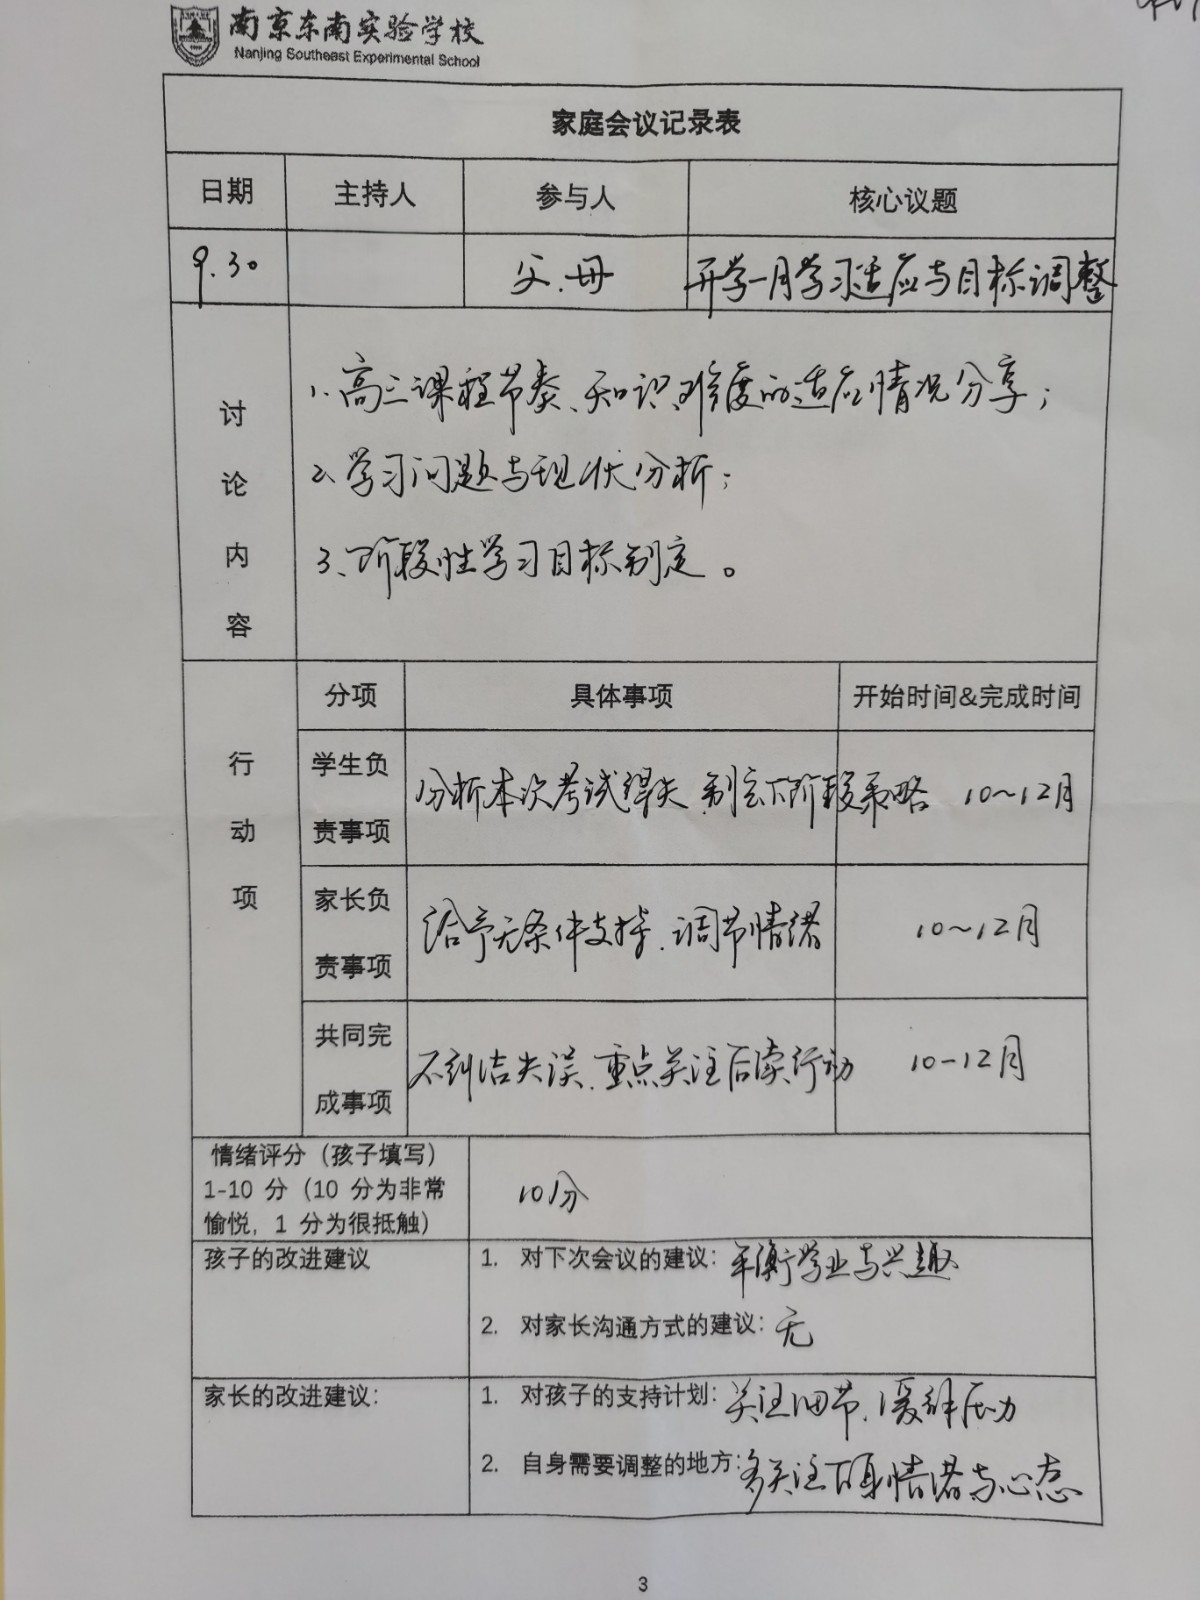 南京东南实验学校
Nanjing Southeast Experimental School
家庭会议记录表
日期 主持人 参与人 核心议题
9.30 父.母 开学一月学习适应与目标调整
讨论内容
1、高三课程节奏、知识难度的适应情况分享；
2、学习问题与现状分析；
3、阶段性学习目标制定。
行动项
分项 具体事项 开始时间&完成时间
学生负责事项 分析本次考试得失 制定下阶段策略 10~12月
家长负责事项 给予无条件支持、调节情绪 10~12月
共同完成事项 不纠结失误、重点关注后续行动 10-12月
情绪评分（孩子填写）
1-10 分（10 分为非常
愉悦，1 分为很抵触）
10分
孩子的改进建议
1. 对下次会议的建议：平衡学业与兴趣
2. 对家长沟通方式的建议：无
家长的改进建议：
1. 对孩子的支持计划：关注细节、缓解压力
2. 自身需要调整的地方：多关注 情绪与心态
3